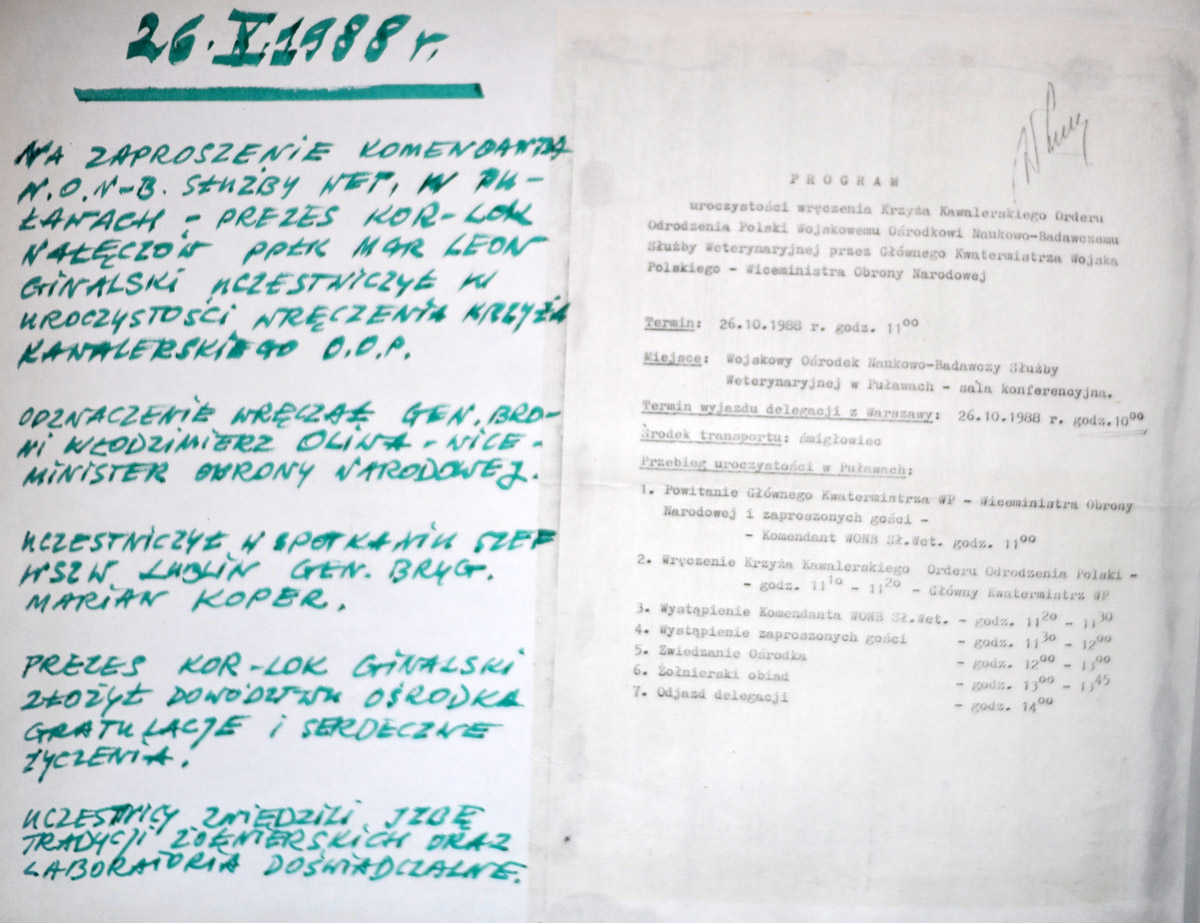 26.X.1988 r.
NA ZAPROSZENIE KOMENDANTA
W.O.N-B. SŁUŻBY WET. W PU-
ŁAWACH - PREZES KOR-LOK
NAŁĘCZÓW PPŁK MGR LEON
GINALSKI UCZESTNICZYŁ W
UROCZYSTOŚCI WRĘCZENIA KRZYŻA
KAWALERSKIEGO O.O.P.
ODZNACZENIE WRĘCZAŁ GEN. BRO-
NI WŁODZIMIERZ OLIWA - WICE-
MINISTER OBRONY NARODOWEJ.
UCZESTNICZYŁ W SPOTKANIU SZEF
WSZW LUBLIN GEN. BRYG.
MARIAN KOPER.
PREZES KOR-LOK GINALSKI
ZŁOŻYŁ DOWÓDZTWU OŚRODKA
GRATULACJE I SERDECZNE
ŻYCZENIA.
UCZESTNICY ZWIEDZILI IZBĘ
TRADYCJI ŻOŁNIERSKICH ORAZ
LABORATORIA DOŚWIADCZALNE.
P R O G R A M
uroczystości wręczenia Krzyża Kawalerskiego Orderu
Odrodzenia Polski Wojskowemu Ośrodkowi Naukowo-Badawczemu
Służby Weterynaryjnej przez Głównego Kwatermistrza Wojska
Polskiego - Wiceministra Obrony Narodowej
Termin: 26.10.1988 r. godz. 11⁰⁰
Miejsce: Wojskowy Ośrodek Naukowo-Badawczy Służby
Weterynaryjnej w Puławach - sala konferencyjna.
Termin wyjazdu delegacji z Warszawy: 26.10.1988 r. godz.10⁰⁰
Środek transportu: śmigłowiec
Przebieg uroczystości w Puławach:
1. Powitanie Głównego Kwatermistrza WP - Wiceministra Obrony
Narodowej i zaproszonych gości -
- Komendant WONB Sł.Wet. godz. 11⁰⁰
2. Wręczenie Krzyża Kawalerskiego Orderu Odrodzenia Polski -
- godz. 11¹⁰ - 11²⁰ - Główny Kwatermistrz WP
3. Wystąpienie Komendanta WONB Sł.Wet. - godz. 11²⁰ - 11³⁰
4. Wystąpienie zaproszonych gości - godz. 11³⁰ - 12⁰⁰
5. Zwiedzanie Ośrodka - godz. 12⁰⁰ - 13⁰⁰
6. Żołnierski obiad - godz. 13⁰⁰ - 13⁴⁵
7. Odjazd delegacji - godz. 14⁰⁰